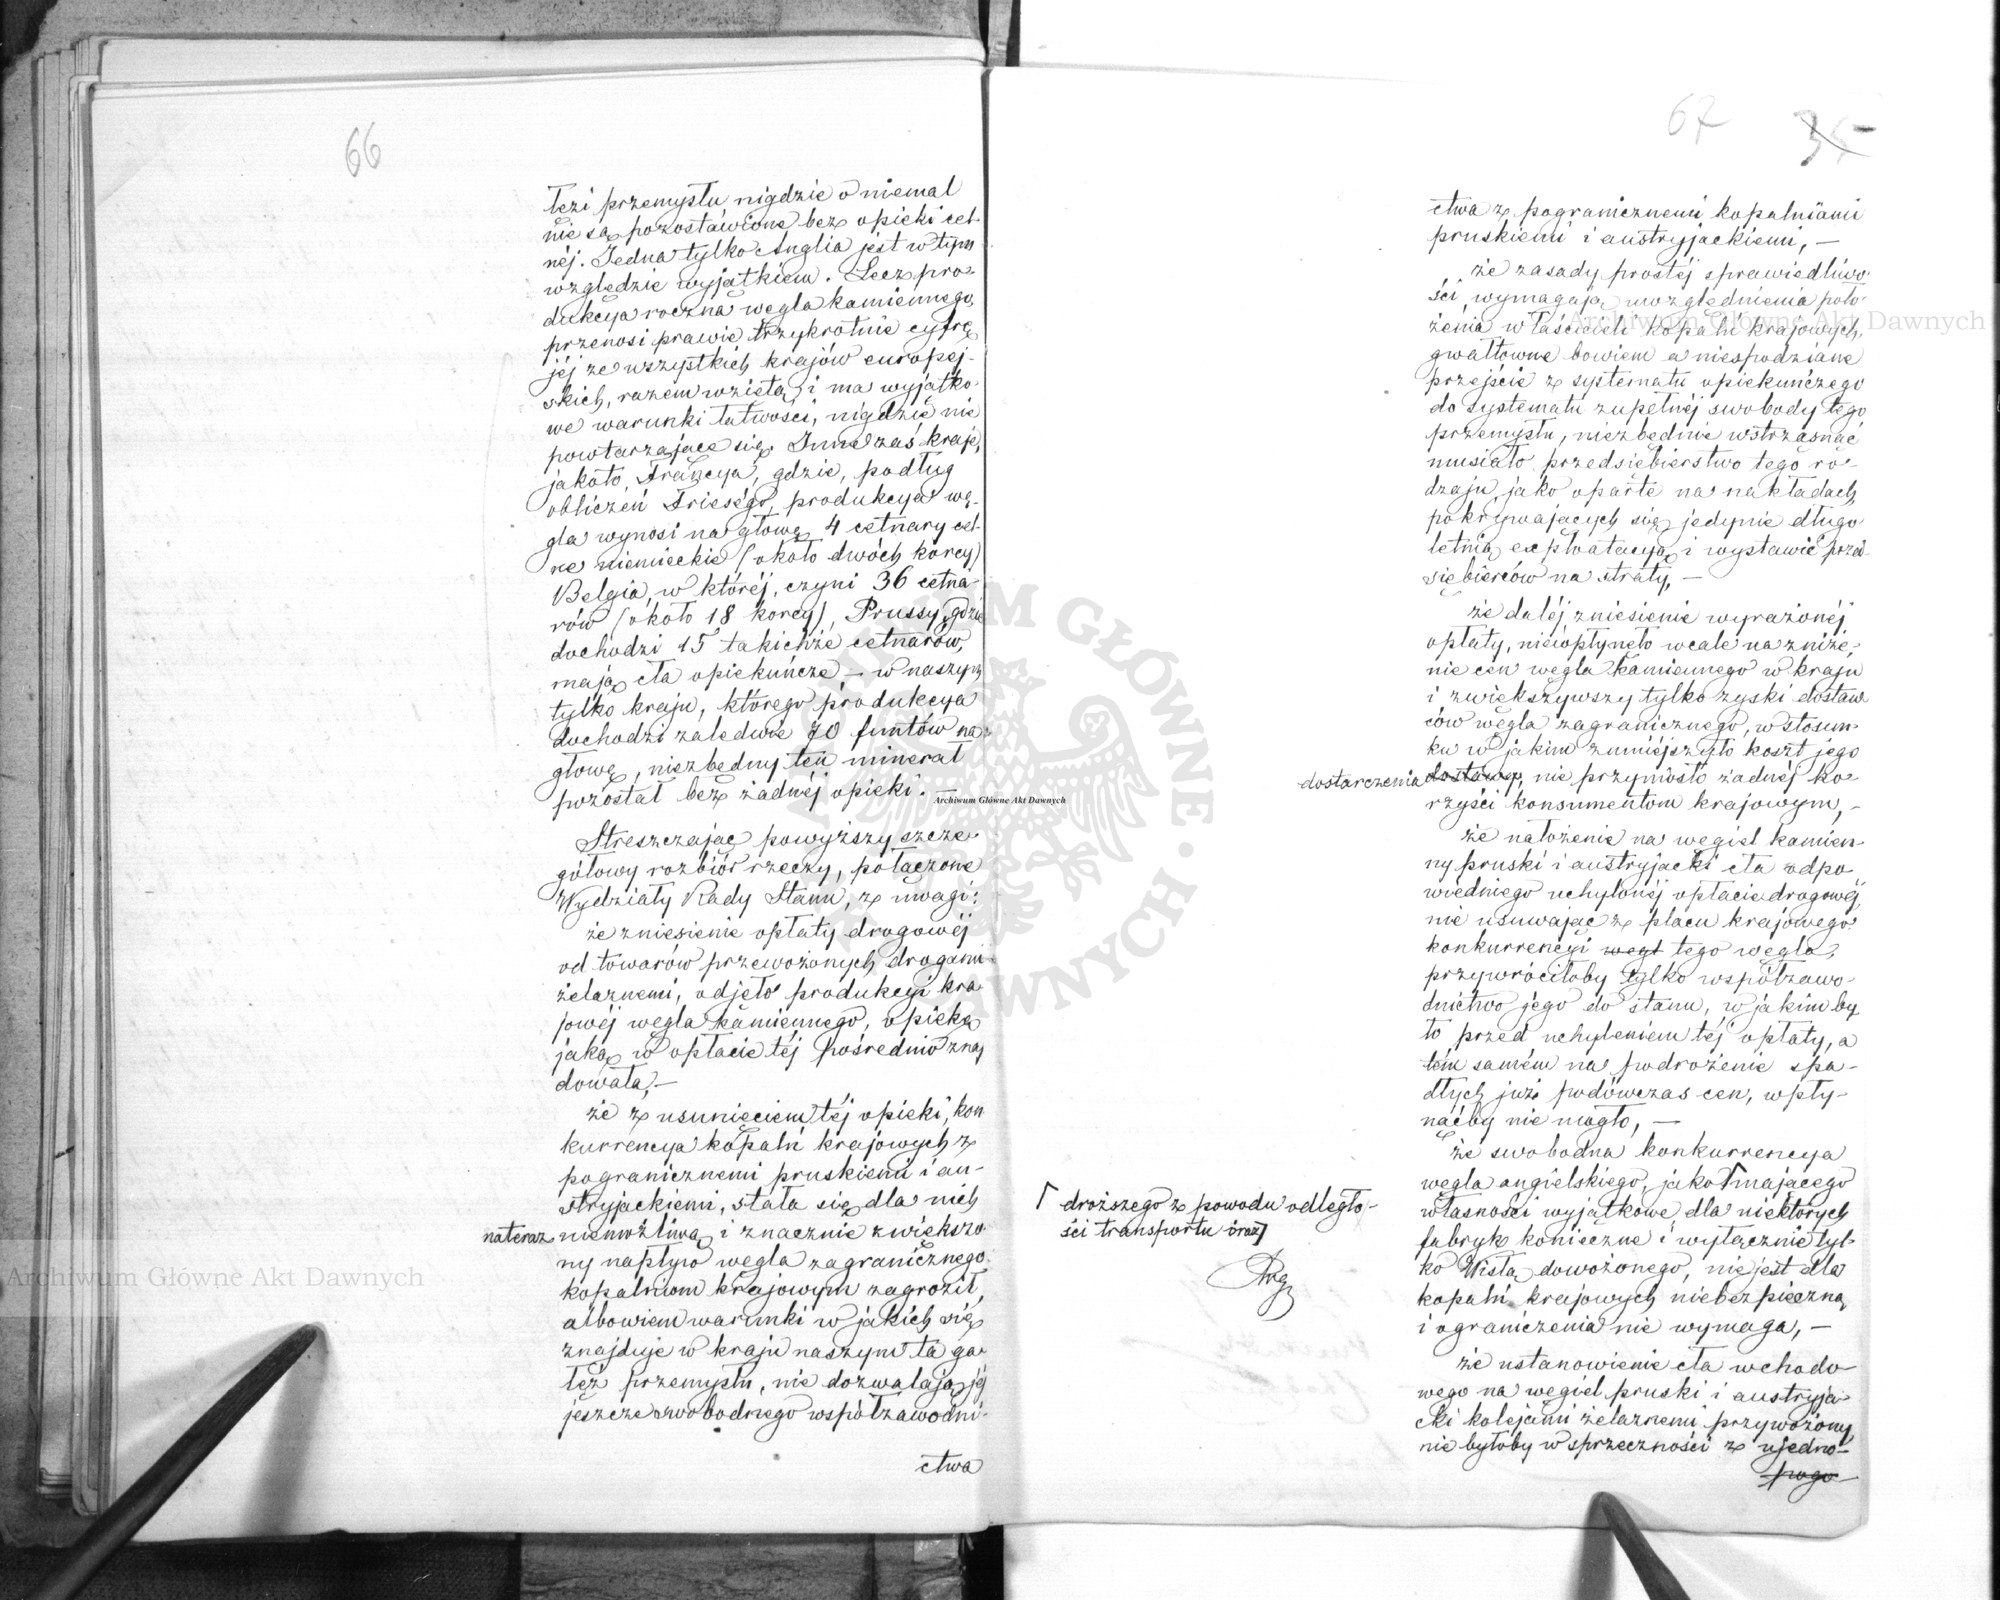 66
łęzi przemysłu nigdzie o niemal
nie są pozostawione bez opieki cel-
néj. Jedna tylko Anglia jest w tym
względzie wyjątkiem. Lecz pro-
dukcya roczna węgla kamiennego
przenosi prawie trzykrotnie cyfrę
jéj ze wszystkich krajów europej-
skich, razem wziętą, i ma wyjątko-
we warunki łatwości, nigdzie nie
powtarzające się. Inne zaś kraje,
jakoto, Francya, gdzie, podług
obliczeń Frieségo, produkcya wę-
gla wynosi na głowę 4 cetnary cel-
ne niemieckie (około dwóch korcy)
Belgia, w któréj, czyni 36 cetna-
rów (około 18 korcy), Prussy, gdzie
dochodzi 15 takichże cetnarów,
mają cła opiekuńcze, — w naszym
tylko kraju, którego produkcya
dochodzi zaledwie 70 funtów na
głowę, niezbędny ten minerał
pozostał bez żadnéj opieki. —
Streszczając powyższy szcze-
gółowy rozbiór rzeczy, połączone
Wydziały Rady Stanu, z uwagi:
że zniesienie opłaty drogowéj
od towarów przewożonych drogami
żelaznemi, odjęło produkcyi kra-
jowéj węgla kamiennego, opiekę
jaką w opłacie téj pośrednio znaj
dowała, —
że z usunięciem téj opieki, kon
kurrencya kopalń krajowych z
pogranicznemi pruskiemi i au-
stryjackiemi, stała się dla nich
nateraz niemożliwą i znacznie zwiększo
ny napływ węgla zagranicznego
kopalniom krajowym zagroził,
albowiem warunki w jakich się
znajduje w kraju naszym ta ga-
łęź przemysłu, nie dozwalają jéj
jeszcze swobodnego współzawodni-
ctwa
67 35
ctwa z pogranicznemi kopalniami
pruskiemi i austryjackiemi, —
że zasady prostéj sprawiedliwo-
ści, wymagają uwzględnienia poło-
żenia właścicieli kopalń krajowych,
gwałtowne bowiem a niespodziane
przejście z systematu opiekuńczego
do systematu zupełnéj swobody tego
przemysłu, niezbędnie wstrząsnąć
musiało przedsiębierstwo tego ro-
dzaju, jako oparte na nakładach
pokrywających się jedynie długo
letnią exploatacyą i wystawić przed-
siębierców na straty, —
że daléj zniesienie wyrażonéj
opłaty, nieopłynęło wcale na zniże-
nie cen węgla kamiennego w kraju
i zwiększywszy tylko zyski dostaw
ców węgla zagranicznego, w stosun-
ku w jakim zmniejszyło koszt jego
dostarczenia dostawy, nie przyniosło żadnéj ko-
rzyści konsumentom krajowym, —
że nałożenie na węgiel kamien-
ny pruski i austryjacki cła odpo
wiedniego uchylonéj opłacie drogowéj,
nie usuwając z placu krajowego
konkurrencyi węgl tego węgla,
przywróciłoby tylko współzawo-
dnictwo jego do stanu, w jakim by
ło przed uchyleniem téj opłaty, a
tém samém na podrożenie spa-
dłych już podówczas cen, wpły-
nąćby nie mogło, —
że swobodna konkurrencya
węgla angielskiego, jako ⌈ mającego
własności wyjątkowe, dla niektórych
fabryk konieczne i wyłącznie tyl-
ko Wisłą dowożonego, nie jest dla
kopalń krajowych niebezpieczną
i ograniczenia nie wymaga, —
że ustanowienie cła wchodo-
wego na węgiel pruski i austryja-
cki kolejami żelaznemi przywożony,
nie byłoby w sprzeczności z ujedno-
pogo
⌈ droższego z powodu odległo-
ści transportu oraz]
Archiwum Główne Akt Dawnych
Archiwum Główne Akt Dawnych
Archiwum Główne Akt Dawnych
ARCHIWUM GŁÓWNE AKT DAWNYCH